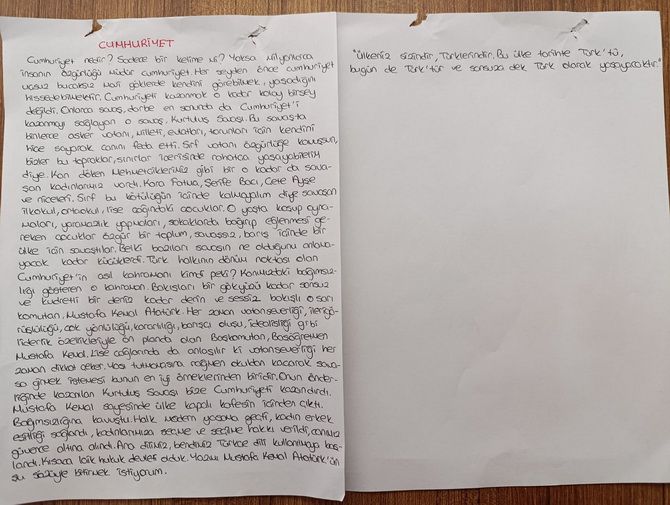 CUMHURİYET
Cumhuriyet nedir? Sadece bir kelime mi? Yoksa milyonlarca
insanın özgürlüğü müdür cumhuriyet. Her şeyden önce cumhuriyet
uçsuz bucaksız mavi göklerde kendini görebilmek, yaşadığını
hissedebilmektir. Cumhuriyeti kazanmak o kadar kolay birşey
değildi. Onlarca savaş, darbe en sonunda da Cumhuriyet'i
kazanmayı sağlayan o savaş. Kurtuluş Savaşı. Bu savaşta
binlerce asker vatanı, milleti, evlatları, torunları için kendini
hiçe sayarak canını feda etti. Sırf vatanı özgürlüğe kavuşsun,
bizler bu topraklar, sınırlar içerisinde rahatça yaşayabilelim
diye. Kan döken Mehmetçiklerimiz gibi bir o kadar da sava-
şan kadınlarımız vardı. Kara Fatma, Şerife Bacı, Çete Ayşe
ve niceleri. Sırf bu kötülüğün içinde kalmayalım diye savaşan
ilkokul, ortaokul, lise çağındaki çocuklar. O yaşta koşup oyna-
maları, yaramazlık yapmaları, sokaklarda bağırıp eğlenmesi ge-
reken çocuklar özgür bir toplum, savaşsız, barış içinde bir
ülke için savaştılar. Belki bazıları savaşın ne olduğunu anlama-
yacak kadar küçüklerdi. Türk halkının dönüm noktası olan
Cumhuriyet'in asıl kahramanı kimdi peki? Kanımızdaki bağımsız-
lığı gösteren o kahraman. Bakışları bir gökyüzü kadar sonsuz
ve kudretli bir deniz kadar derin ve sessiz bakışlı o sarı
komutan. Mustafa Kemal Atatürk. Her zaman vatanseverliği, ileri gö-
rüşlülüğü, çok yönlülüğü, kararlılığı, barışçı oluşu, idealistliği gibi
liderlik özellikleriyle ön planda olan Başkomutan, Başöğretmen
Mustafa Kemal. Lise çağlarında da anlaşılır ki vatanseverliği her
zaman dikkat çeker. Yaşı tutmamasına rağmen okuldan kaçarak sava-
şa girmek istemesi bunun en iyi örneklerinden biridir. Onun önder-
liğinde kazanılan Kurtuluş Savaşı bize Cumhuriyeti kazandırdı.
Mustafa Kemal sayesinde ülke kapalı kafesin içinden çıktı.
Bağımsızlığına kavuştu. Halk modern yaşama geçti, kadın erkek
eşitliği sağlandı, kadınlarımıza seçme ve seçilme hakkı verildi, canımız
güvence altına alındı. Ana dilimiz, Türkçe dili kullanmaya baş-
landı. Kısaca laik hukuk devleti olduk. Yazımı Mustafa Kemal Atatürk'ün
şu sözüyle bitirmek istiyorum.
"Ülkemiz sizindir, Türklerindir. Bu ülke tarihte Türk'tü,
bugün de Türk'tür ve sonsuza dek Türk olarak yaşayacaktır."